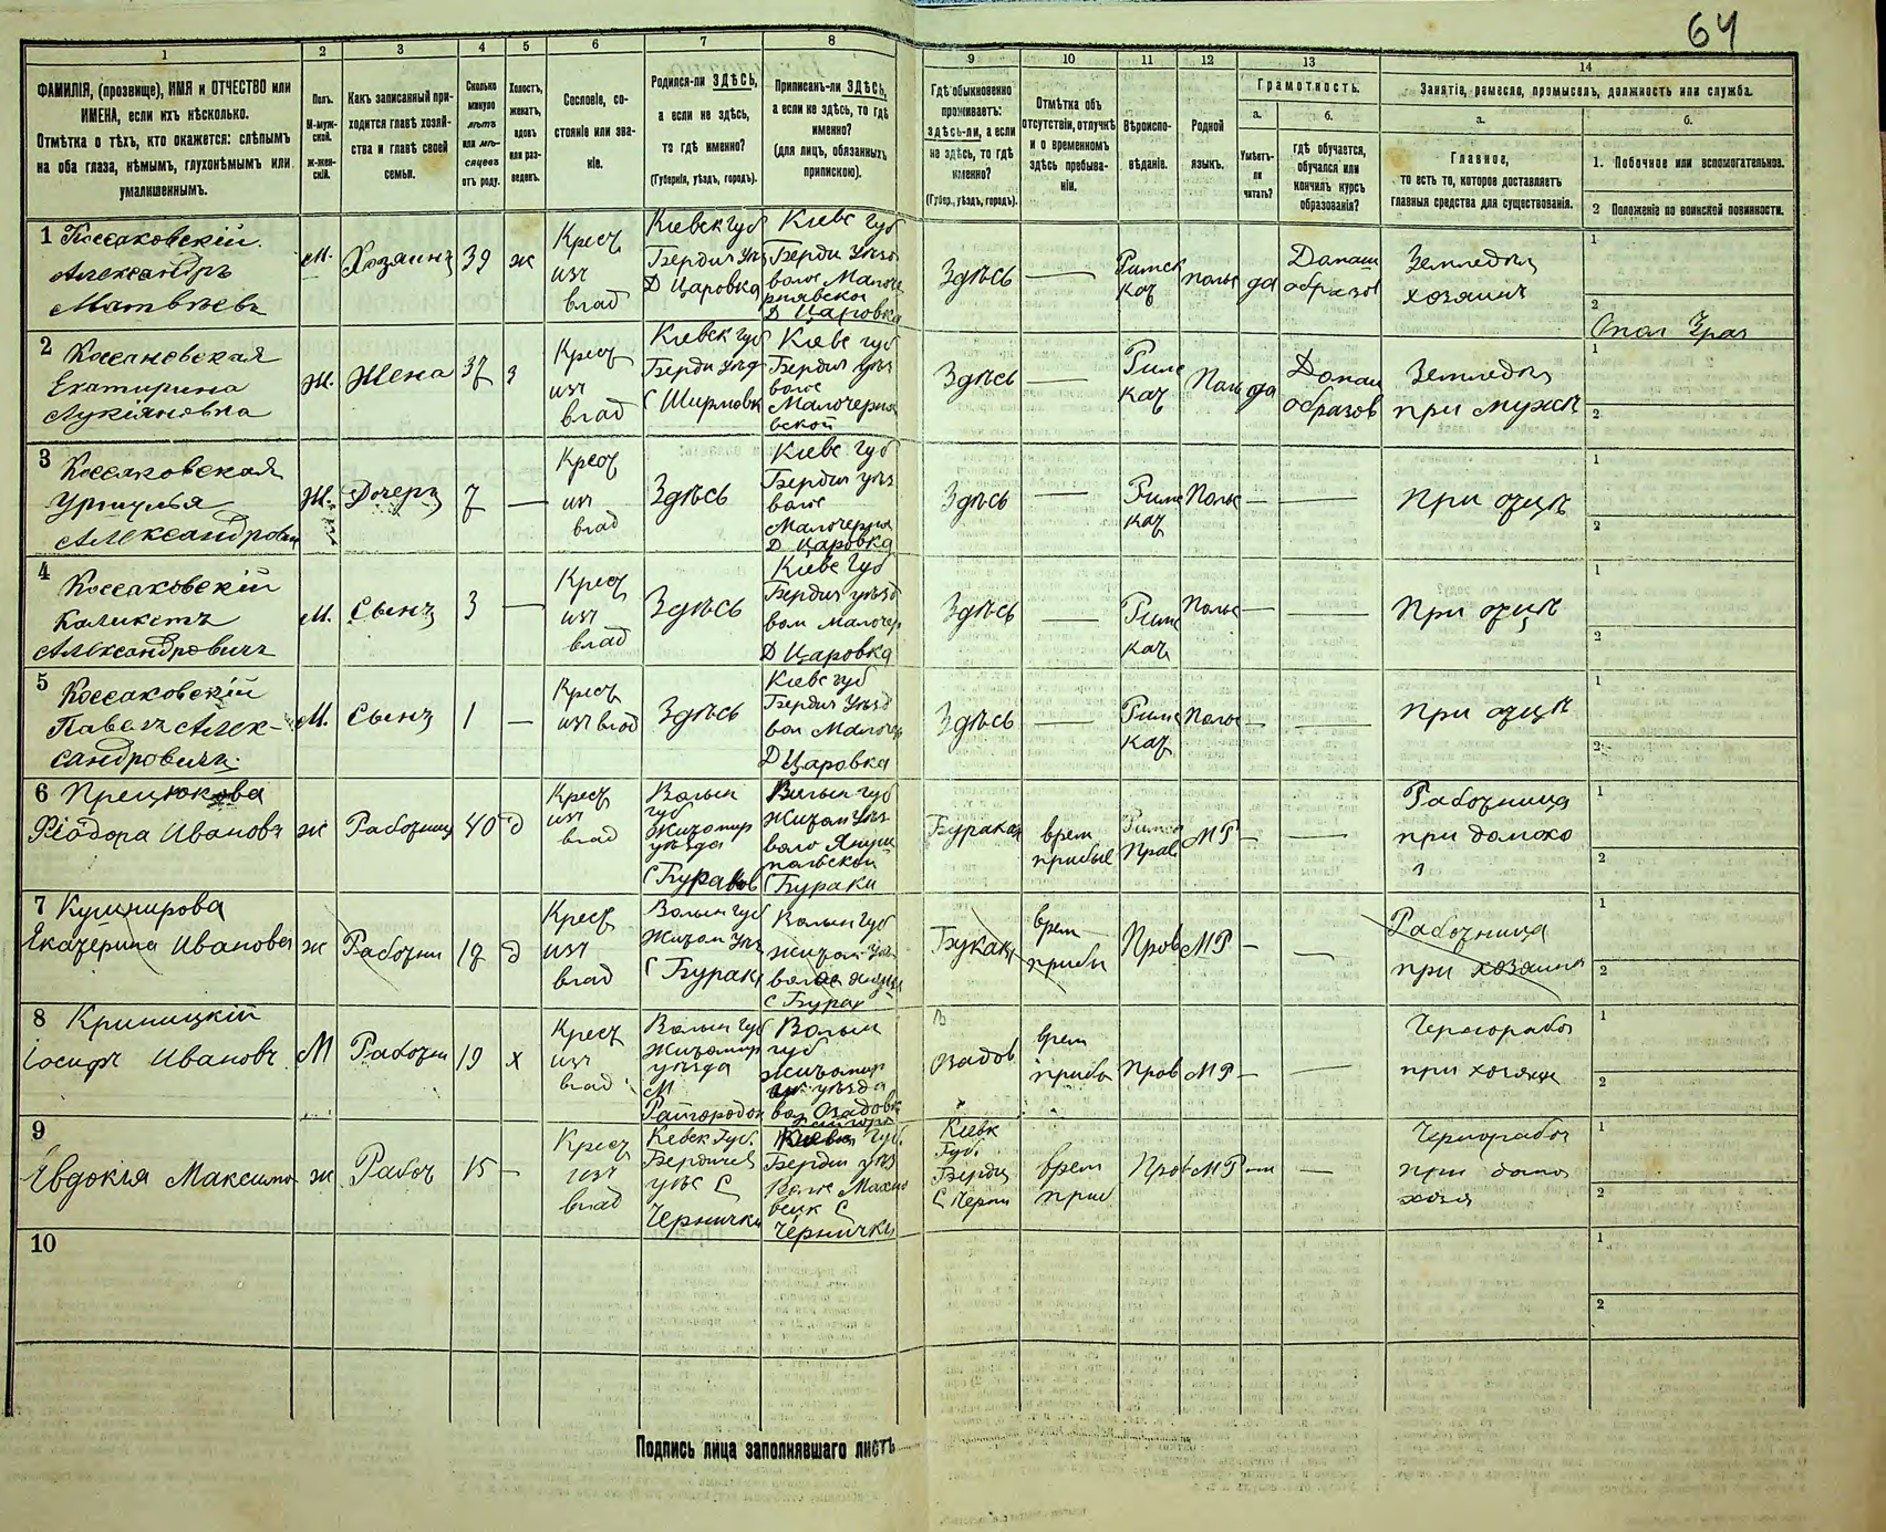 64
1
2
3
4
5
6
7
8
9
10
11
12
13
14
ФАМИЛІЯ, (прозвище), ИМЯ и ОТЧЕСТВО или
ИМЕНА, если ихъ нѣсколько.
Отмѣтка о тѣхъ, кто окажется: слѣпымъ
на оба глаза, нѣмымъ, глухонѣмымъ или
умалишеннымъ.
Полъ.
М-муж-
ской.
Ж-жен-
скій.
Какъ записанный при-
ходится главѣ хозяй-
ства и главѣ своей
семьи.
Сколько
минуло
лѣтъ
или мѣ-
сяцевъ
отъ роду.
Холостъ,
женатъ,
вдовъ
или раз-
веденъ.
Сословіе, со-
стояніе или зва-
ніе.
Родился-ли ЗДѢСЬ,
а если не здѣсь,
то гдѣ именно?
(Губернія, уѣздъ, городъ).
Приписанъ-ли ЗДѢСЬ,
а если не здѣсь, то гдѣ
именно?
(для лицъ, обязанныхъ
припискою).
Гдѣ обыкновенно
проживаетъ:
здѣсь-ли, а если
не здѣсь, то гдѣ
именно?
(Губер., уѣздъ, городъ).
Отмѣтка объ
отсутствіи, отлучкѣ
и о временномъ
здѣсь пребыва-
ніи.
Вѣроиспо-
вѣданіе.
Родной
языкъ.
Грамотность.
а.
Умѣетъ-
ли
читать?
б.
гдѣ обучается,
обучался или
кончилъ курсъ
образованія?
Занятіе, ремесло, промыселъ, должность или служба.
а.
Главное,
то есть то, которое доставляетъ
главныя средства для существованія.
б.
1. Побочное или вспомогательное.
2 Положеніе по воинской повинности.
1 Коссаковскій
Александръ
Матвѣевъ
М.
Хозяинъ
39
ж
Крест
изъ
влад
Кіевск губ
Бердич уѣз
Д Царовка
Кіевс губ
Берди уѣзд
волос Малоче
рнявской
Д Царовка
Здѣсь
—
Римск
кат
польс
да
Домаш
образов
Земледѣл
хозяинъ
1
2
2 Коссаковская
Екатирина
Лукіяновна
Ж.
Жена
37
з
Крест
изъ
влад
Кіевск губ
Берди уѣзд
С Ширмовк
Кіевс губ
Бердич уѣз
волос
Малочерня
вской
Здѣсь
—
Римс
кат
Поль
да
Домаш
образов
Земледѣл
при мужѣ
1
2
3 Коссаковская
Уршулья
Александровн
Ж.
Дочерь
7
—
Крест
изъ
влад
Здѣсь
Кіевс губ
Бердич уѣз
волос
Малочерня
Д Царовка
Здѣсь
—
Римс
кат
Польс
—
—
При отцѣ
1
2
4 Коссаковскій
Каликстъ
Александровичъ
М.
Сынъ
3
—
Крест
изъ
влад
Здѣсь
Кіевс губ
Бердич уѣзд
вол Малочер
Д Царовка
Здѣсь
—
Римс
кат
Польс
—
—
При отцѣ
1
2
5 Коссаковскій
Павелъ Алек-
сандровичъ.
М.
Сынъ
1
—
Крест
изъ влад
Здѣсь
Кіевс губ
Бердич уѣзд
вол Малочер
Д Царовка
Здѣсь
—
Римс
кат
Польс
—
—
при отцѣ
1
2
6 Прецюкова
Ѳіодора Ивановн
ж
Работниц
40
д
Крест
изъ
влад
Волын
губ
Житомир
уѣзда
Волын губ
Житом уѣз
воло Януш
польской
С Бураки
врем
прибыв
Прав
МР
—
—
Работница
при домохо
1
2
7 Кушнирова
Екатерина Иванова
ж
Работни
д
Крест
изъ
влад
Волын губ
Житом уѣз
С Бураки
Волын губ
Житом
врем
прибы
Прав
МР
—
—
Работница
при хозяина
1
2
8 Криницкій
Іосифъ Ивановъ
М
Работни
19
х
Крест
изъ
влад
Волын губ
Житомир
уѣзда
М
Райгородок
Волын
губ
Житомир
уѣзда
вол Озадовк
Озадов
врем
прибы
Прав
МР
—
—
Чернорабо
при хозяин
1
2
9
Евдокія Максимо
ж
Работ
15
—
Крест
изъ
влад
Кіевск Губ.
Бердичев
уѣз С
Чернички
Губ.
Берди уѣз
Волос Махно
вецк С
Чернички
Кіевк
Губ.
Бердич
С Черни
врем
приб
Прав
МР
—
Чернорабоч
при домо
хозя
1
2
10
1
2
Подпись лица заполнявшаго листъ